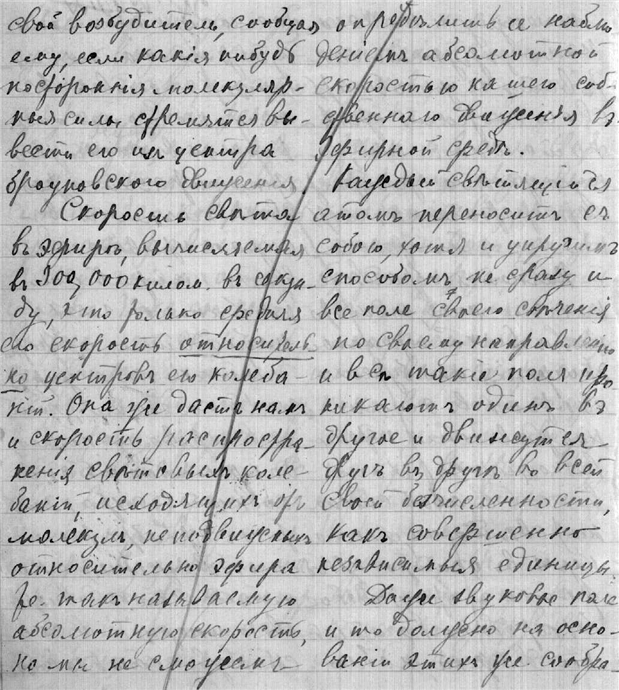 свой возбудитель, сообщая
ему, если какія нибудь
постороннія молекуляр-
ныя силы стремятся вы-
вести его изъ центра
броуновского движенія.
Скорость свѣта
въ эфирѣ, вычисляемая
въ 300,000 килом. въ секун-
ду, это только средняя
его скорость относитель
но центровъ его колеба-
ній. Она же дастъ намъ
и скорость распростра-
ненія свѣтовыхъ коле-
баній, исходящихъ отъ
молекулъ, неподвижныхъ
относительно эфира
т.е. такъ называемую
абсолютную скорость,
но мы не сможемъ
опредѣлить ее наблю
деніемъ абсолютной
скоростью нашего соб-
ственнаго движенія въ
эфирной средѣ.
Каждый свѣтящійся
атомъ переноситъ съ
собою, хотя и упругимъ
способомъ не сразу и
все поле своего свѣченія
по своему направленію
и всѣ такія поля про
никаютъ одинъ въ
другое и движутся
другъ въ другѣ во всей
своей безчисленности,
какъ совершенно
независимыя единицы.
Даже звуковое поле
и то должно на осно-
ваніи этихъ же сообра-